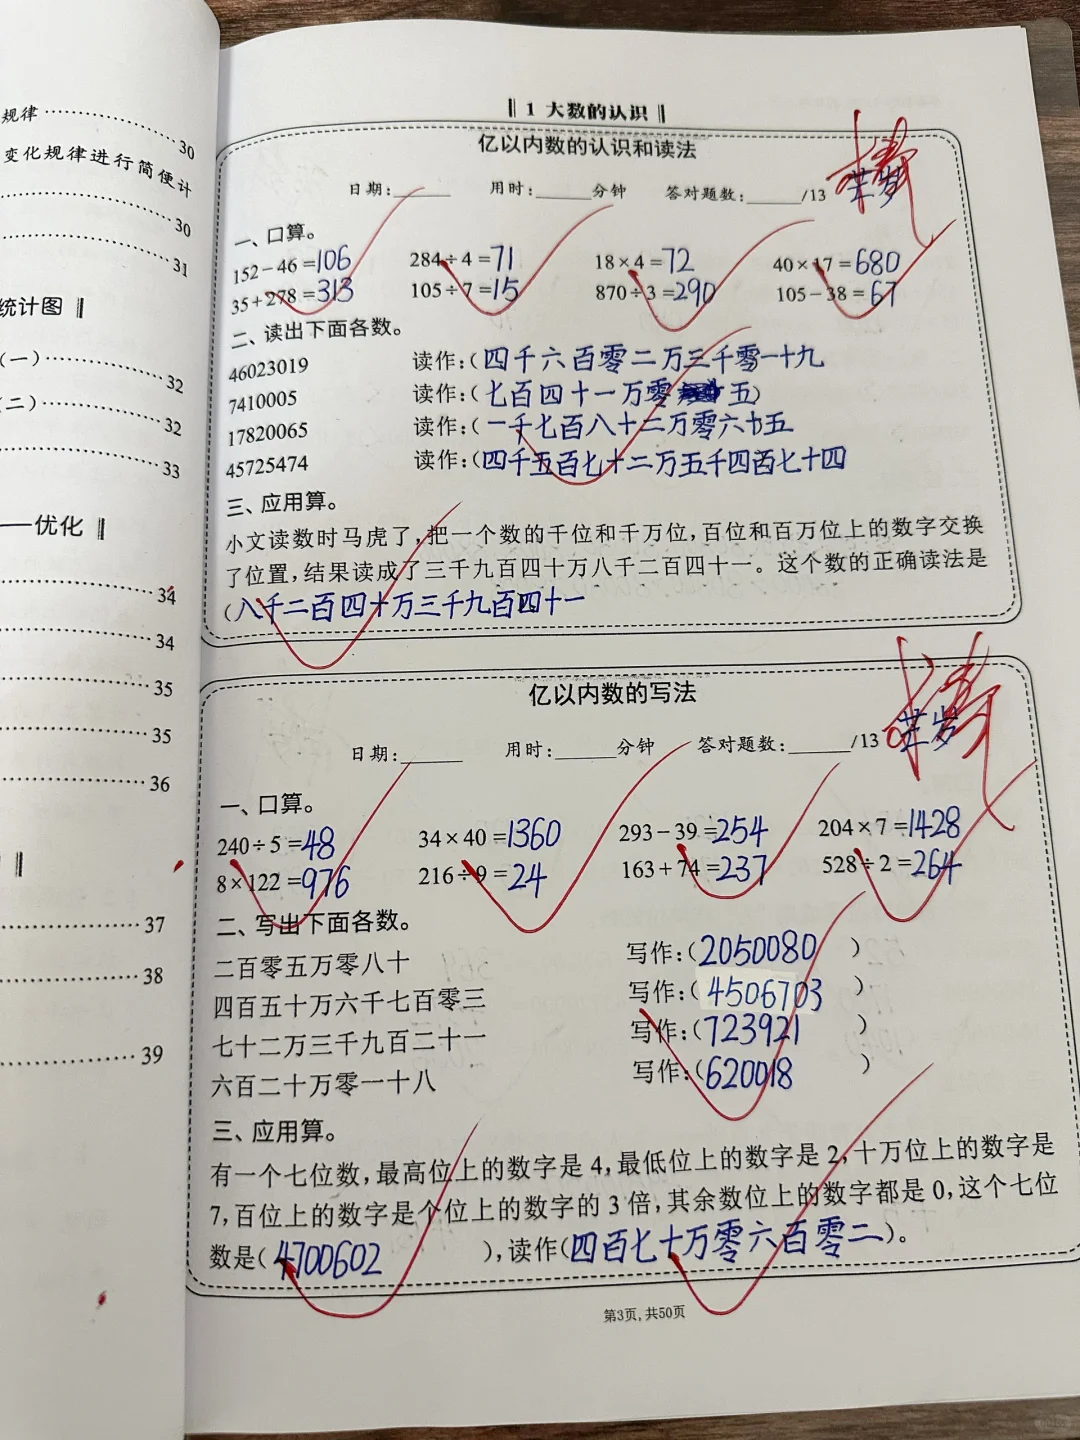 规律 30
变化规律进行简便计
30
31
统计图
(一) 32
(二) 32
33
——优化
34
34
35
35
36
37
38
39
1 大数的认识
亿以内数的认识和读法
日期:______ 用时:______分钟 答对题数:______/13
一、口算。
152-46=106 284÷4=71 18×4=72 40×17=680
35+278=313 105÷7=15 870÷3=290 105-38=67
二、读出下面各数。
46023019 读作:(四千六百零二万三千零一十九
7410005 读作:(七百四十一万零五)
17820065 读作:(一千七百八十二万零六十五
45725474 读作:(四千五百七十二万五千四百七十四
三、应用算。
小文读数时马虎了,把一个数的千位和千万位,百位和百万位上的数字交换
了位置,结果读成了三千九百四十万八千二百四十一。这个数的正确读法是
(八千二百四十万三千九百四十一
亿以内数的写法
日期:______ 用时:______分钟 答对题数:______/13
一、口算。
240÷5=48 34×40=1360 293-39=254 204×7=1428
8×122=976 216÷9=24 163+74=237 528÷2=264
二、写出下面各数。
二百零五万零八十 写作:(2050080)
四百五十万六千七百零三 写作:(4506703)
七十二万三千九百二十一 写作:(723921)
六百二十万零一十八 写作:(620018)
三、应用算。
有一个七位数,最高位上的数字是 4,最低位上的数字是 2,十万位上的数字是
7,百位上的数字是个位上的数字的 3 倍,其余数位上的数字都是 0,这个七位
数是(4700602),读作(四百七十万零六百零二)。
第3页,共50页